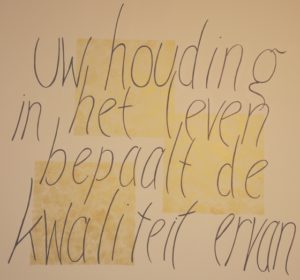 uw houding
in het leven
bepaalt de
kwaliteit ervan